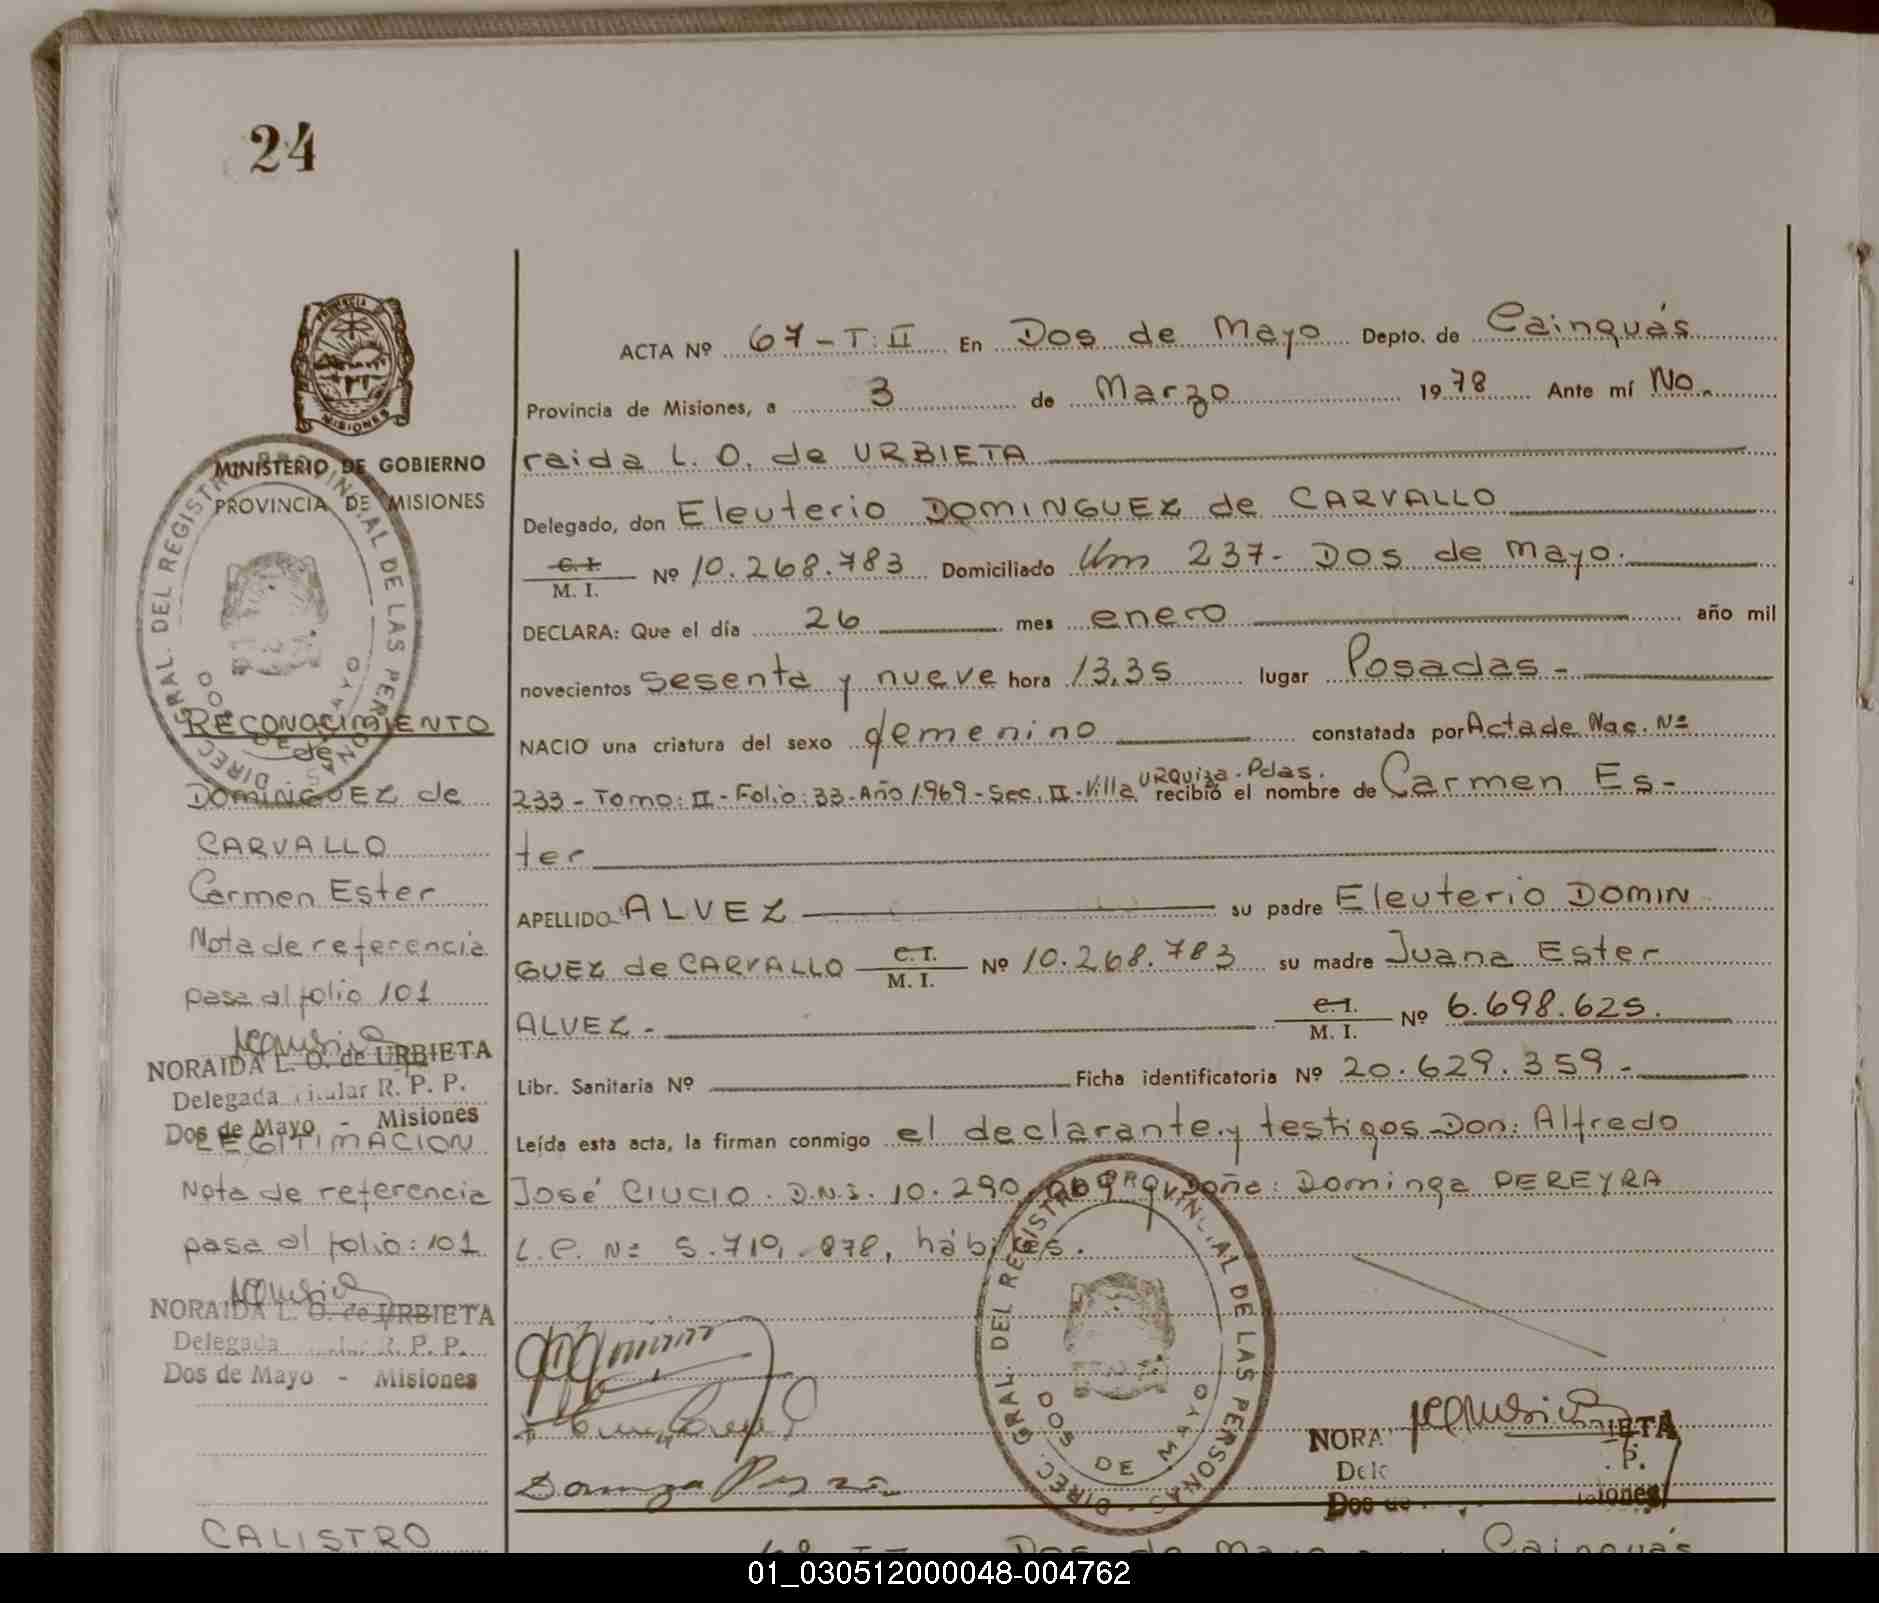 24
PROVINCIA
MISIONES
MINISTERIO DE GOBIERNO
PROVINCIA DE MISIONES
DIREC. GRAL. DEL REGISTRO PROVINCIAL DE LAS PERSONAS
DOS DE MAYO
RECONOCIMIENTO
de
DOMINGUEZ de
CARVALLO
Carmen Ester
Nota de referencia
pasa al folio 101
NORAIDA L. O. de URBIETA
Delegada Titular R. P. P.
Dos de Mayo - Misiones
LEGITIMACION
Nota de referencia
pasa al folio: 101
NORAIDA L. O. de URBIETA
Delegada R. P. P.
Dos de Mayo - Misiones
CALISTRO
ACTA Nº 67-T:II En Dos de Mayo Depto. de Cainguás
Provincia de Misiones, a 3 de Marzo 1978 Ante mí No.
raida L. O. de URBIETA
Delegado, don Eleuterio DOMINGUEZ de CARVALLO
C. I. M. I. Nº 10.268.783 Domiciliado Km 237- Dos de Mayo.
DECLARA: Que el día 26 mes enero año mil
novecientos sesenta y nueve hora 13,35 lugar Posadas-
NACIO una criatura del sexo femenino constatada por Acta de Nac. Nº
233-Tomo:II-Folio:33-Año 1969-Sec. II-Villa URQuiza-Pdas. recibió el nombre de Carmen Es-
ter
APELLIDO ALVEZ su padre Eleuterio DOMIN
GUEZ de CARVALLO C. I. M. I. Nº 10.268.783 su madre Juana Ester
ALVEZ- C. I. M. I. Nº 6.698.625.
Libr. Sanitaria Nº Ficha identificatoria Nº 20.629.359-
Leída esta acta, la firman conmigo el declarante y testigos Don: Alfredo
José CIUCIO. D.N.I. 10.290.069 y Doña: Dominga PEREYRA
L.C. Nº 5.710.878, hábiles.
DIREC. GRAL. DEL REGISTRO PROVINCIAL DE LAS PERSONAS
DOS DE MAYO
NORA IETA
Dele P.
Dos de iones
Dos de Mayo Cainguás
01_030512000048-004762